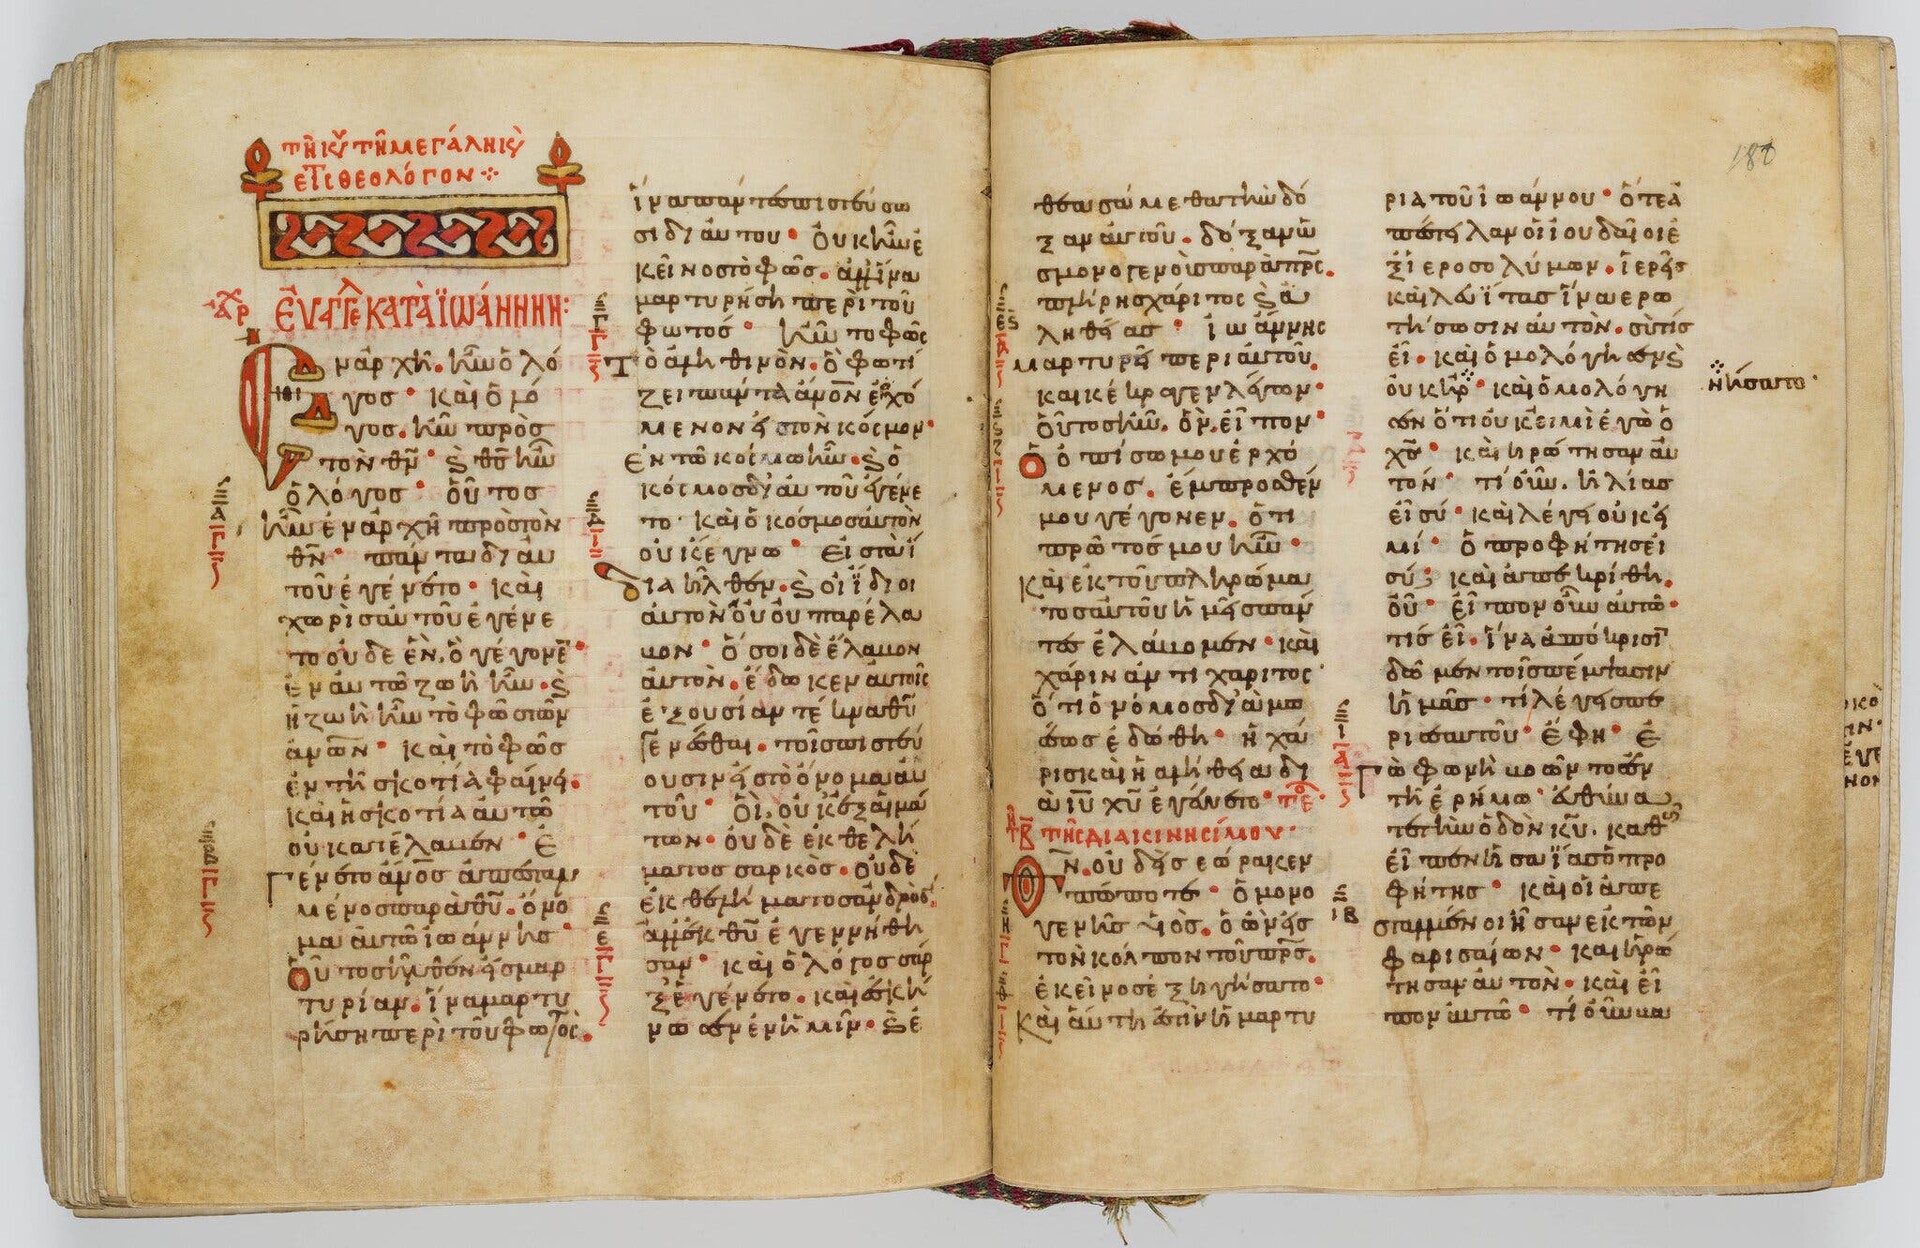 τῆ κυ τῆ μεγάλη κυ
εἰς θεολόγον
ἀρχ
εὐαγγε κατὰ ϊωάννην:
Ἐν ἀρχῆ. ἦν ὁ λό
γος · καὶ ὁ λό
γος. ἦν πρὸς
τὸν θν · ϗ θς ἦν
ὁ λόγος · οὗτος
ἦν ἐν ἀρχῆ πρὸς τὸν
θν · πάντα δι ἀυ
τοῦ ἐγένετο · καὶ
χωρὶς ἀυτοῦ ἐγένε
το οὐδε ἓν. ὃ γέγονε ·
ἐν ἀυτῶ ζωὴ ἦν. ϗ
ἡ ζωὴ ἦν τὸ φῶς τῶν
ἀνων · καὶ τὸ φῶς
ἐν τῆ σκοτία φαίνει.
καὶ ἡ σκοτία ἀυτὸ
οὐ κατέλαβεν · Ἐ
γένετο ἀνος ἀπεσταλ
μένος παρὰ θυ. ὄνο
μα ἀυτῶ ἰωάννης ·
Οὗτος ἦλθεν εἰς μαρ
τυρίαν. ἵνα μαρτυ
ρήση περὶ τοῦ φωτὸς.
ἵνα πάντες πιστεύσω
σι δι ἀυτου · ὀυκ ἦν ἐ
κεῖνος τὸ φῶς. ἀλλ ἵνα
μαρτυρήση περὶ τοῦ
φωτός · ἦν το φῶς
τὸ ἀληθινὸν. ὃ φωτί
ζει πάντα ἀνον ἐρχό
μενον εἰς τὸν κόσμον ·
Ἐν τῶ κόσμω ἦν. ϗ ὁ
κόσμος δι ἀυτοῦ ἐγένε
το · καὶ ὁ κόσμος ἀυτὸν
οὐκ ἔγνω · Εἰς τὰ ἴ
δια ἦλθεν. ϗ οἱ ἴδιοι
ἀυτὸν οὐ παρέλα
βον · ὅσοι δὲ ἔλαβον
ἀυτὸν. ἔδωκεν ἀυτοῖς
ἐξουσίαν τέκνα θυ
γενέσθαι. τοῖς πιστεύ
ουσιν εἰς τὸ ὄνομα ἀυ
τοῦ · Οἳ. οὐκ ἐξ αἱμά
των · οὐδὲ ἐκ θελή
ματος σαρκὸς. οὐδὲ
ἐκ θελήματος ἀνδρὸς.
ἀλλ ἐκ θυ ἐγεννήθη
σαν · καὶ ὁ λόγος σάρ
ξ ἐγένετο. καὶ ἐσκή
νωσεν ἐν ἡμῖν. ϗ ἐ
θεασάμεθα τὴν δό
ξαν ἀυτοῦ. δόξαν ὡ
ς μονογενοῦς παρὰ πρς.
πλήρης χάριτος ϗ ἀ
ληθείας · ἰωάννης
μαρτυρεῖ περι ἀυτοῦ.
καὶ κέκραγεν λέγων ·
οὗτος ἦν. ὃν εἶπον ·
Ὁ ὀπίσω μου ἐρχό
μενος. ἔμπροσθέν
μου γέγονεν. ὅτι
πρῶτός μου ἦν ·
καὶ ἐκ τοῦ πληρώμα
τος ἀυτοῦ ἡμεῖς πάν
τες ἐλάβομεν · καὶ
χάριν ἀντὶ χάριτος ·
ὅτι ὁ νόμος διὰ μω
ϋσέως ἐδόθη · ἡ χά
ρις καὶ ἡ ἀλήθεια δι
ὰ ιυ χυ ἐγένετο · τε
τη β τῆς διακινησίμου ·
Θν. οὐδεὶς ἑώρακεν
πώποτε · ὁ μονο
γενὴς υἱὸς. ὁ ὢν εἰς
τὸν κόλπον τοῦ πρς.
ἐκεῖνος ἐξηγήσατο ·
καὶ ἀυτη ἐστὶν ἡ μαρτυ
187
ρία τοῦ ἰωάννου · ὅτε ἀ
πέστειλαν οἱ ἰουδαῖοι ἐ
ξ ἱεροσολύμων. ἱερεῖς
καὶ λευΐτας ἵνα ἐρω
τήσωσιν ἀυτὸν. σὺ τίς
εἶ. καὶ ὁμολόγησεν ϗ
οὐκ ἠρ · καὶ ὁμολόγη
ἠρνήσατο ·
σεν ὅτι οὐκ εἰμὶ ἐγὼ ὁ
χς · καὶ ἠρώτησαν ἀυ
τόν · τί οὖν. ἠλίας
εἶ σύ · καὶ λέγει οὐκ εἰ
μί · ὁ προφήτης εἶ
σύ; καὶ ἀπεκρίθη.
οὔ · εἶπον οὖν ἀυτῶ ·
τίς εἶ. ἵνα ἀπόκρισι
δῶμεν τοῖς πέμψασιν
ἡμᾶς · τί λέγεις πε
ρὶ σεαυτοῦ · ἔφη · Ἐ
γὼ φωνὴ βοῶντος ἐν
τῆ ἐρήμω · ἐυθύνα
τε τὴν ὁδὸν κυ. καθὼς
εἶπεν ἡσαΐας ὁ προ
φήτης · καὶ οἱ ἀπε
σταλμένοι ἦσαν ἐκ τῶν
φαρισαίων · καὶ ἠρώ
τησαν ἀυτὸν · καὶ εἶ
πον ἀυτῶ · τί οὖν βα